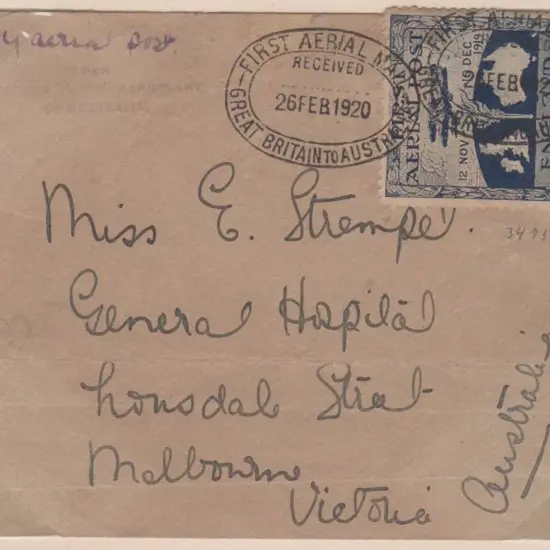 y aerial post.
FIRST AERIAL MAIL
RECEIVED
26 FEB 1920
GREAT BRITAIN TO AUSTRALIA
FIRST
AERIAL POST
12 NOV
10 DEC 1919
ENGLAND
FIRST AERIAL
FEB
Miss E. Strempel.
General Hospital
Lonsdale Street
Melbourne
Victoria
Australia